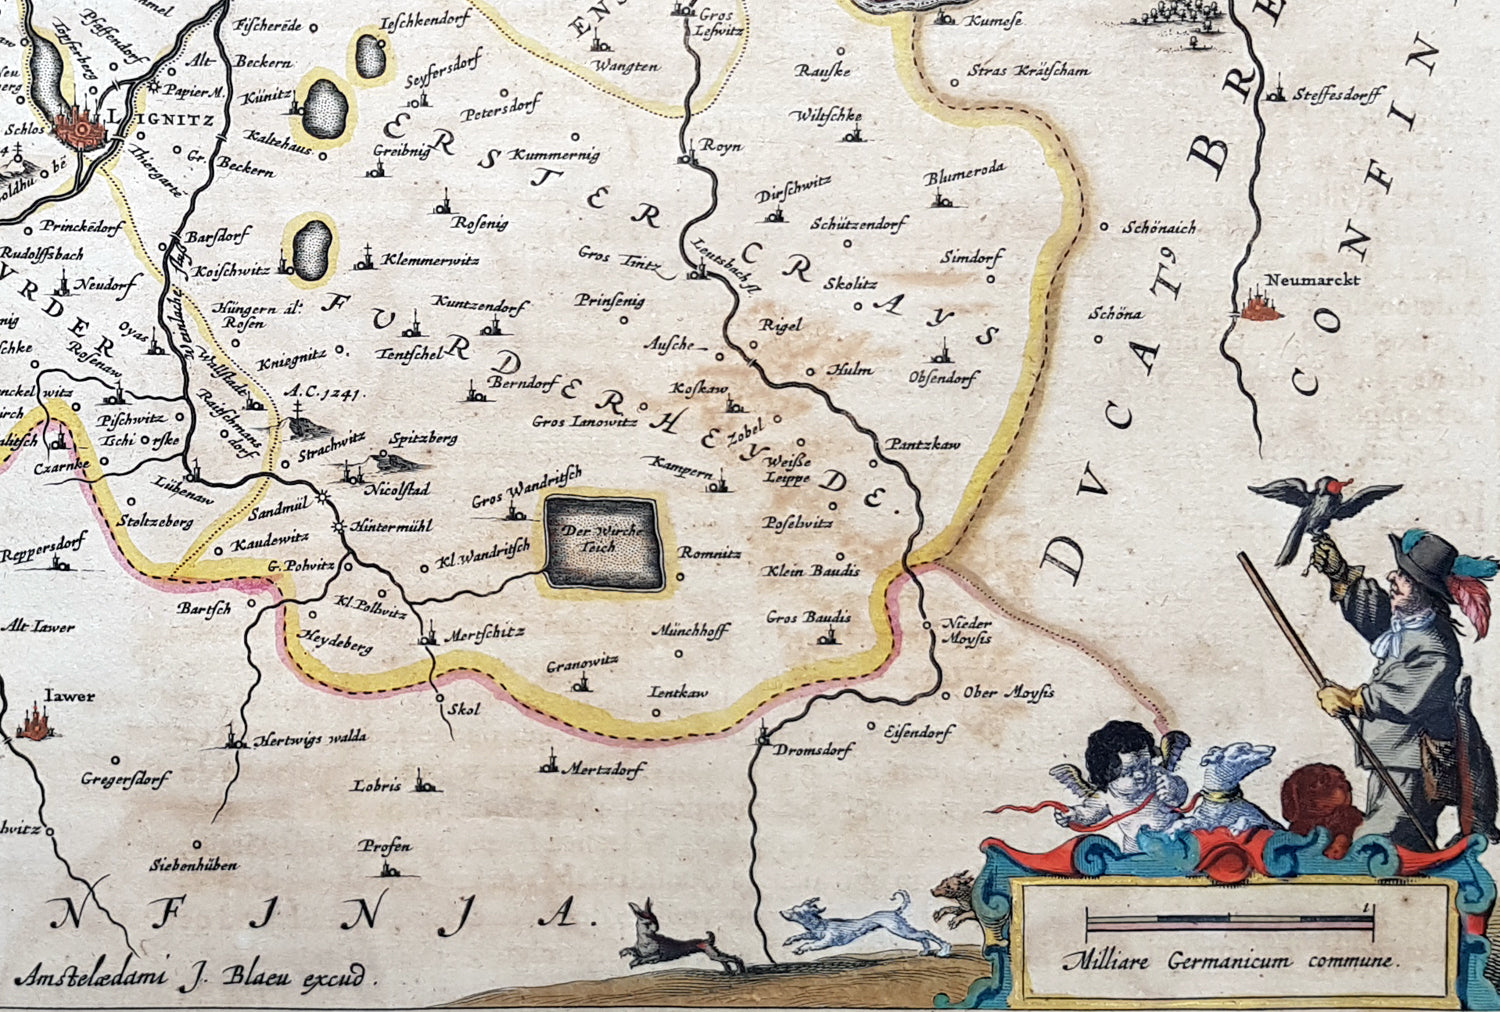 Pfaffendorf
Töpferberg
Fischerede
Ieschkendorf
Gros
Lefwitz
Kumese
Wangten
Alt
Beckern
Papier M.
Künitz
Seyfersdorf
Petersdorf
Rauske
Stras Krätscham
Steffesdorff
Schlos
LIGNITZ
Kaltehaus
Wiltschke
Thiergarte
Gr. Beckern
Greibnig
Kummernig
Royn
ERSTER CRAYS
Dirschwitz
Blumeroda
Princkēdorf
Barsdorf
Rosenig
Schützendorf
Schönaich
Rudolfsbach
Koischwitz
Klemmerwitz
Gros Tintz
Leutsbach fl.
Simdorf
Neudorf
Skolitz
Neumarckt
Hüngern al:
Rosen
Kuntzendorf
Prinsenig
Schöna
Oyas
Rosenaw
Weinlache flus
Wallstadt
Kniegnitz
Tentschel
Rigel
Ausche
Hulm
Obsendorf
A.C. 1241.
Berndorf
Koskaw
FURDER HEYDE.
VRDER
Pischwitz
Raitschmans
dorf
Gros Ianowitz
Zobel
Tschirske
Strachwitz
Spitzberg
Pantzkaw
Czarnke
Lübenaw
Nicolstad
Kampern
Weiße
Leippe
Gros Wandritsch
Stoltzeberg
Sandmül
Hintermühl
Poselwitz
Der Wirche
Teich
Reppersdorf
Kaudewitz
Kl. Wandritsch
Romnitz
G. Pohvitz
Klein Baudis
Bartsch
Kl. Pollwitz
Alt Iawer
Heydeberg
Mertschitz
Münchhoff
Gros Baudis
Nieder
Moysis
Granowitz
Iawer
Skol
Ientkaw
Ober Moysis
Hertwigs walda
Eisendorf
Dromsdorf
Gregersdorf
Lobris
Mertzdorf
Profen
Siebenhüben
DVCATꝰ BRE
CONFIN
NFINJA.
Amstelædami J. Blaeu excud.
1
Milliare Germanicum commune.